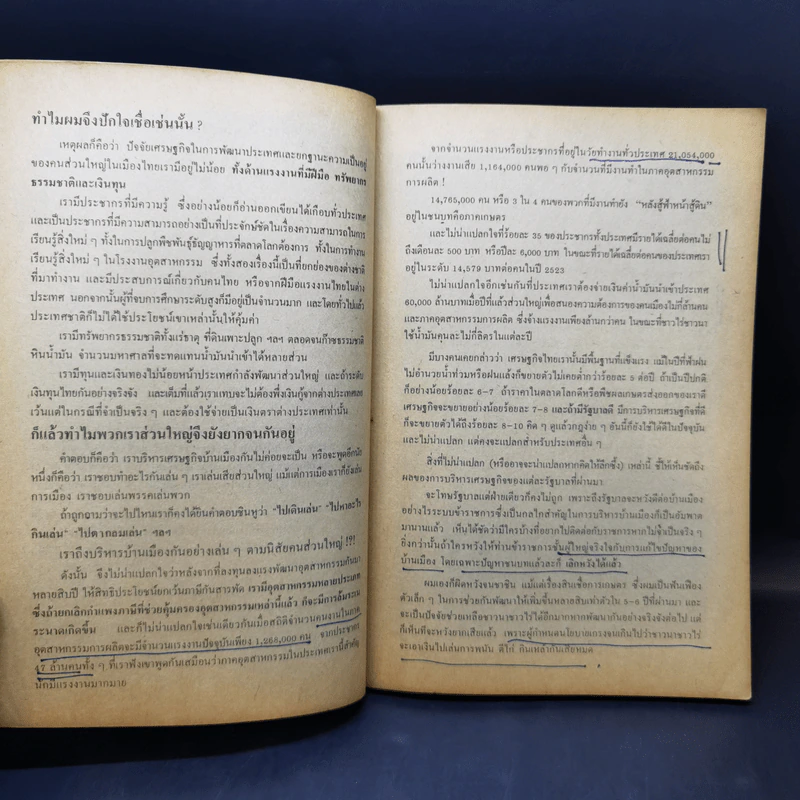 ทำไมผมจึงปักใจเชื่อเช่นนั้น ?
เหตุผลก็คือว่า ปัจจัยเศรษฐกิจในการพัฒนาประเทศและยกฐานะความเป็นอยู่
ของคนส่วนใหญ่ในเมืองไทยเรามีอยู่ไม่น้อย ทั้งด้านแรงงานที่มีฝีมือ ทรัพยากร
ธรรมชาติและเงินทุน
เรามีประชากรที่มีความรู้ ซึ่งอย่างน้อยก็อ่านออกเขียนได้เกือบทั่วประเทศ
และเป็นประชากรที่มีความสามารถอย่างเป็นที่ประจักษ์ชัดในเรื่องความสามารถในการ
เรียนรู้สิ่งใหม่ ๆ ทั้งในการปลูกพืชพันธุ์ธัญญาหารที่ตลาดโลกต้องการ ทั้งในการทำงาน
เรียนรู้สิ่งใหม่ ๆ ในโรงงานอุตสาหกรรม ซึ่งทั้งสองเรื่องนี้เป็นที่ยกย่องของต่างชาติ
ที่มาทำงาน และมีประสบการณ์เกี่ยวกับคนไทย หรือจากฝีมือแรงงานไทยในต่าง
ประเทศ นอกจากนั้นผู้ที่จบการศึกษาระดับสูงก็มีอยู่เป็นจำนวนมาก และโดยทั่วไปแล้ว
ประเทศชาติก็ไม่ได้ใช้ประโยชน์เขาเหล่านั้นให้คุ้มค่า
เรามีทรัพยากรธรรมชาติทั้งแร่ธาตุ ที่ดินเพาะปลูก ฯลฯ ตลอดจนก๊าซธรรมชาติ
หินน้ำมัน จำนวนมหาศาลที่จะทดแทนน้ำมันนำเข้าได้หลายส่วน
เรามีทุนและเงินทองไม่น้อยหน้าประเทศกำลังพัฒนาส่วนใหญ่ และถ้าระดับ
เงินทุนไทยกันอย่างจริงจัง และเต็มที่แล้วเราแทบจะไม่ต้องพึ่งเงินกู้จากต่างประเทศเลย
เว้นแต่ในกรณีที่จำเป็นจริง ๆ และต้องใช้จ่ายเป็นเงินตราต่างประเทศเท่านั้น
ก็แล้วทำไมพวกเราส่วนใหญ่จึงยังยากจนกันอยู่
คำตอบก็คือว่า เราบริหารเศรษฐกิจบ้านเมืองกันไม่ค่อยจะเป็น หรือจะพูดอีกนัย
หนึ่งก็คือว่า เราชอบทำอะไรกันเล่น ๆ เราเล่นเสียส่วนใหญ่ แม้แต่การเมืองเราก็ยังเล่น
การเมือง เราชอบเล่นพรรคเล่นพวก
ถ้าถูกถามว่าจะไปไหนเราก็คงได้ยินคำตอบชินหูว่า "ไปเดินเล่น" "ไปหาอะไร
กินเล่น" "ไปตากลมเล่น" ฯลฯ
เราถึงบริหารบ้านเมืองกันอย่างเล่น ๆ ตามนิสัยคนส่วนใหญ่ !?!
ดังนั้น จึงไม่น่าแปลกใจว่าหลังจากที่ลงทุนลงแรงพัฒนาอุตสาหกรรมกันมา
หลายสิบปี ให้สิทธิประโยชน์ยกเว้นภาษีกันสารพัด เรามีอุตสาหกรรมหลายประเภท
ซึ่งถ้ายกเลิกกำแพงภาษีที่ช่วยคุ้มครองอุตสาหกรรมเหล่านี้แล้ว ก็จะมีการล้มระเนระ
ระนาดเกิดขึ้น และก็ไม่น่าแปลกใจเช่นเดียวกันเมื่อสถิติจำนวนคนงานในภาค
อุตสาหกรรมการผลิตจะมีจำนวนแรงงานปัจจุบันเพียง 1,268,000 คน จากประชากร
47 ล้านคนทั้ง ๆ ที่เราฟังเขาพูดกันเสมือนว่าภาคอุตสาหกรรมในประเทศเรานี้สำคัญ
นักมีแรงงานมากมาย
จากจำนวนแรงงานหรือประชากรที่อยู่ในวัยทำงานทั่วประเทศ 21,054,000
คนนั้นว่างงานเสีย 1,164,000 คนพอ ๆ กับจำนวนที่มีงานทำในภาคอุตสาหกรรม
การผลิต !
14,765,000 คน หรือ 3 ใน 4 คนของพวกที่มีงานทำยัง "หลังสู้ฟ้าหน้าสู้ดิน"
อยู่ในชนบทคือภาคเกษตร
และไม่น่าแปลกใจที่ร้อยละ 35 ของประชากรทั้งประเทศมีรายได้เฉลี่ยต่อคนไม่
ถึงเดือนละ 500 บาท หรือปีละ 6,000 บาท ในขณะที่รายได้เฉลี่ยต่อคนของประเทศเรา
อยู่ในระดับ 14,579 บาทต่อคนในปี 2523
ไม่น่าแปลกใจอีกเช่นกันที่ประเทศเราต้องจ่ายเงินค่าน้ำมันนำเข้าประเทศ
60,000 ล้านบาทเมื่อปีที่แล้วส่วนใหญ่เพื่อสนองความต้องการของคนเมืองไม่กี่ล้านคน
และภาคอุตสาหกรรมการผลิต ซึ่งจ้างแรงงานเพียงล้านกว่าคน ในขณะที่ชาวไร่ชาวนา
ใช้น้ำมันคนละไม่กี่ลิตรในแต่ละปี
มีบางคนเคยกล่าวว่า เศรษฐกิจไทยเรานั้นมีพื้นฐานที่แข็งแรง แม้ในปีที่ฟ้าฝน
ไม่อำนวยน้ำท่วมหรือฝนแล้งก็ขยายตัวไม่เคยต่ำกว่าร้อยละ 5 ต่อปี ถ้าเป็นปีปกติ
ก็อย่างน้อยร้อยละ 6-7 ถ้าราคาในตลาดโลกดีหรือพืชผลเกษตรส่งออกของเราดี
เศรษฐกิจจะขยายอย่างน้อยร้อยละ 7-8 และถ้ามีรัฐบาลดี มีการบริหารเศรษฐกิจที่ดี
ก็จะขยายตัวได้ถึงร้อยละ 8-10 คิด ๆ ดูแล้วกฎง่าย ๆ อันนี้ก็ยังใช้ได้ดีในปัจจุบัน
และไม่น่าแปลก แต่คงจะแปลกสำหรับประเทศอื่น ๆ
สิ่งที่ไม่น่าแปลก (หรืออาจจะน่าแปลกหากคิดให้ลึกซึ้ง) เหล่านี้ ชี้ให้เห็นชัดถึง
ผลของการบริหารเศรษฐกิจของแต่ละรัฐบาลที่ผ่านมา
จะโทษรัฐบาลแต่ฝ่ายเดียวก็คงไม่ถูก เพราะถึงรัฐบาลจะหวังดีต่อบ้านเมือง
อย่างไรระบบข้าราชการซึ่งเป็นกลไกสำคัญในการบริหารบ้านเมืองก็เป็นอัมพาต
มานานแล้ว เห็นได้ชัดว่ามีใครบ้างที่อยากไปติดต่อกับราชการหากไม่จำเป็นจริง ๆ
ยิ่งกว่านั้นถ้าใครหวังให้ท่านข้าราชการชั้นผู้ใหญ่จริงใจกับการแก้ไขปัญหาของ
บ้านเมือง โดยเฉพาะปัญหาชนบทแล้วละก็ เลิกหวังได้แล้ว
ผมเองก็ผิดหวังจนชาชิน แม้แต่เรื่องสินเชื่อการเกษตร ซึ่งผมเป็นฟันเฟือง
ตัวเล็ก ๆ ในการช่วยกันพัฒนาให้เพิ่มขึ้นหลายสิบเท่าตัวใน 5-6 ปีที่ผ่านมา และ
จะเป็นปัจจัยช่วยเหลือชาวนาชาวไร่ได้อีกมากหากพัฒนากันอย่างจริงจังต่อไป แต่
ก็เห็นทีจะหวังยากเสียแล้ว เพราะผู้กำหนดนโยบายเกรงจนเกินไปว่าชาวนาชาวไร่
จะเอาเงินไปเล่นการพนัน ตีไก่ กินเหล้ากันเสียหมด